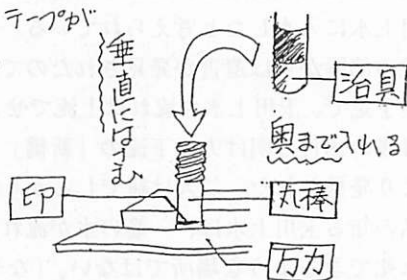 テープが
垂直にはさむ
治具
奥まで入れる
印
丸棒
万力